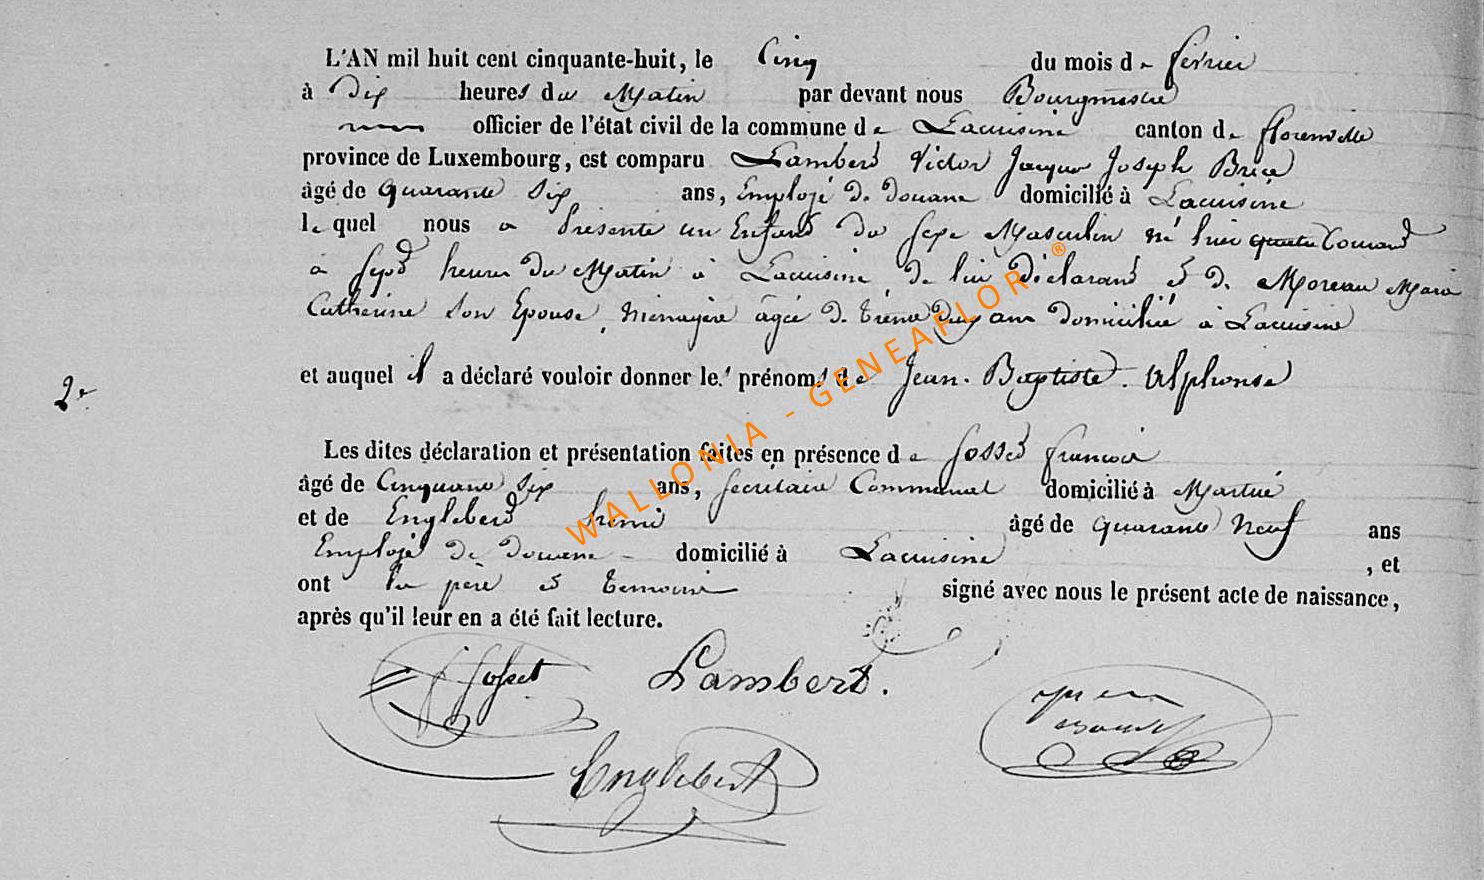 L'AN mil huit cent cinquante-huit, le Cinq du mois de février
à Dix heures du Matin par devant nous Bourgmestre
officier de l'état civil de la commune de Lacuisine canton de florenville
province de Luxembourg, est comparu Lambert Victor Jacques Joseph Brice
âgé de quarante Six ans, Employé de douane domicilié à Lacuisine
lequel nous a présenté un Enfant du sexe Masculin né hier quatre Courant
à sept heures du Matin à Lacuisine, de lui déclarant et de Moreau Marie
Catherine son Epouse, Ménagère âgée de trente deux ans domiciliée à Lacuisine
2e
et auquel il a déclaré vouloir donner les prénoms de Jean-Baptiste-Alphonse
Les dites déclaration et présentation faites en présence de Gosset françois
âgé de Cinquante Six ans, secrétaire Communal domicilié à Martué
et de Englebert âgé de quarante Neuf ans
Employé de douane domicilié à Lacuisine, et
ont les père et témoins signé avec nous le présent acte de naissance,
après qu'il leur en a été fait lecture.
Gosset Lambert.
Englebert
WALLONIA - GENEAFLOR ®